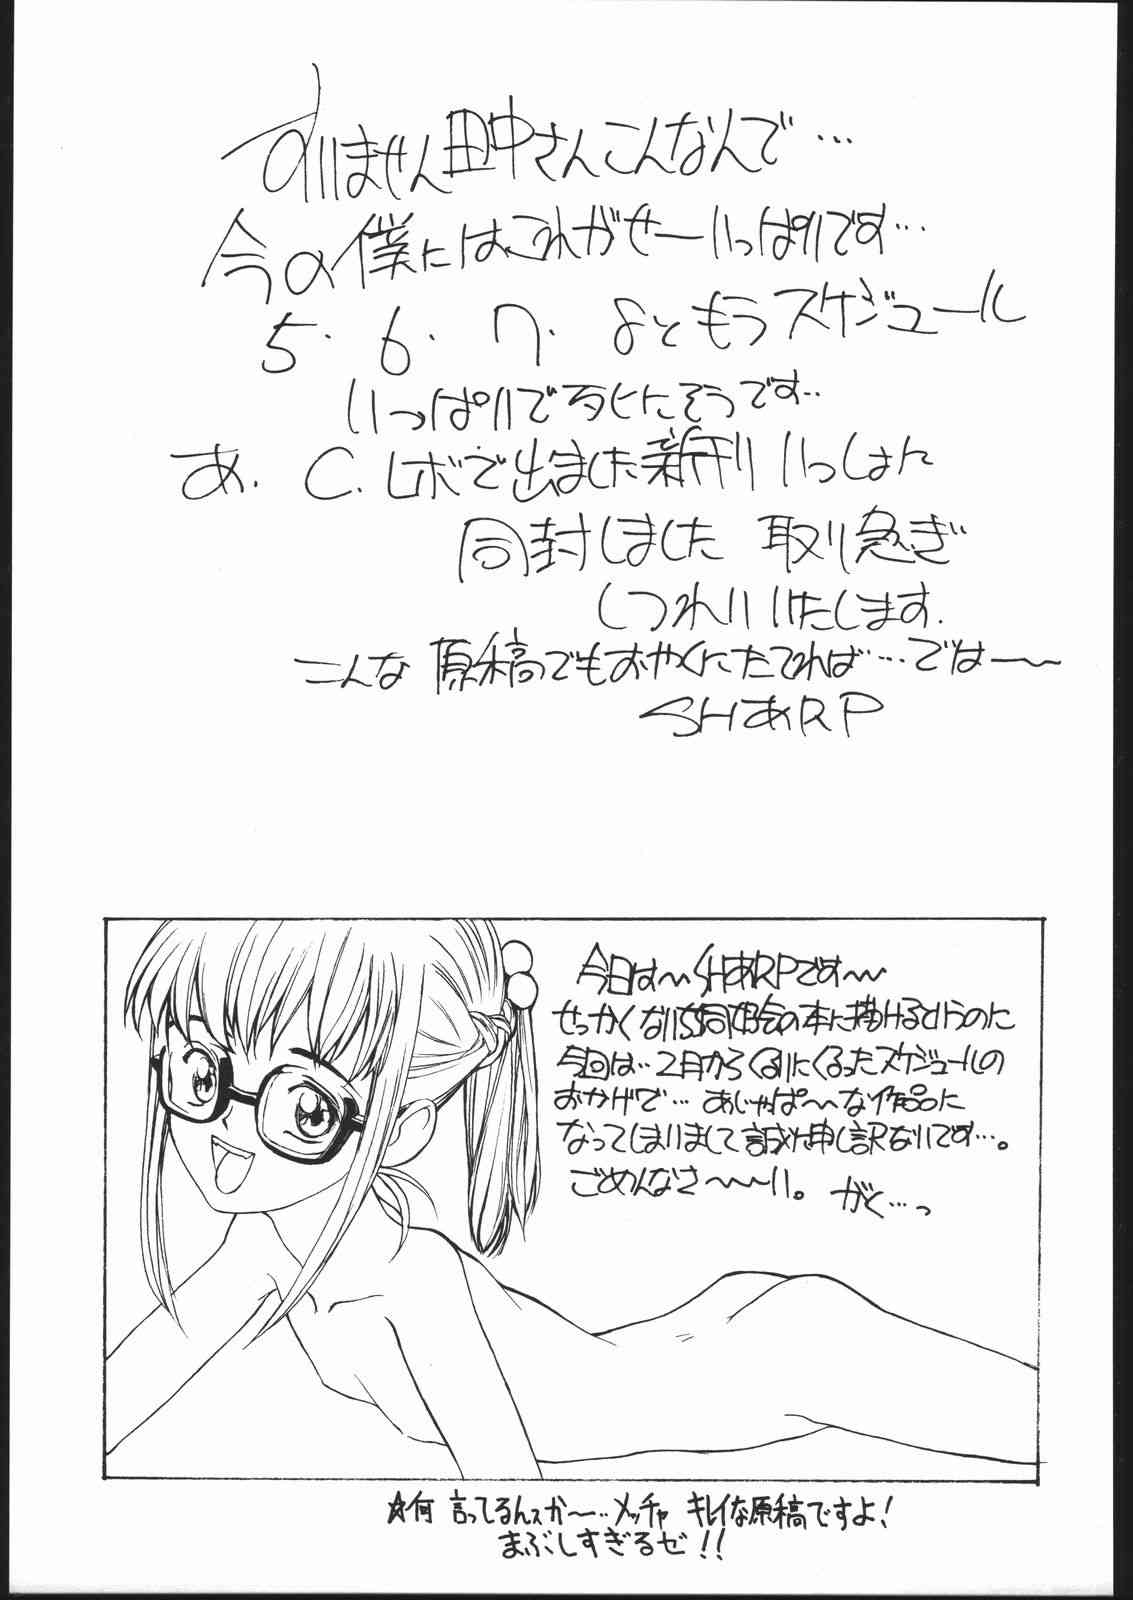 すいません田中さんこんなんで…
今の僕にはこれがせーいっぱいです…
5.6.7.8ともうスケジュール
いっぱいで死にそうです..
あ.C.レボで出ました新刊いっしょに
同封しました 取り急ぎ
しつれいいたします.
こんな原稿でもおやくにたてれば…では〜〜
SHあRP
今日は〜SHあRPです〜
せっかくないち同好会の本に描けるというのに
今回は…2月からくるいにくるったスケジュールの
おかげで…あじゃぱ〜な作品に
なってしまいまして誠に申し訳ないです…。
ごめんなさ〜〜い。がく…っ
☆何言ってるんスか〜…メッチャ キレイな原稿ですよ!
まぶしすぎるゼ!!